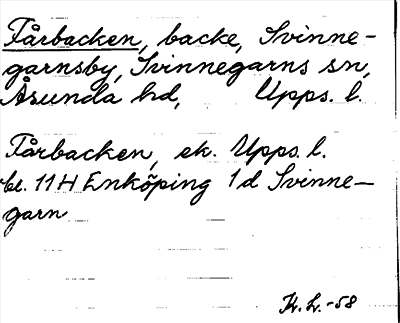 Fårbacken, backe, Svinne-
garnsby, Svinnegarns sn,
Åsunda hd, Upps. l.
Fårbacken, ek. Upps. l.
bl. 11H Enköping 1d Svinne-
garn